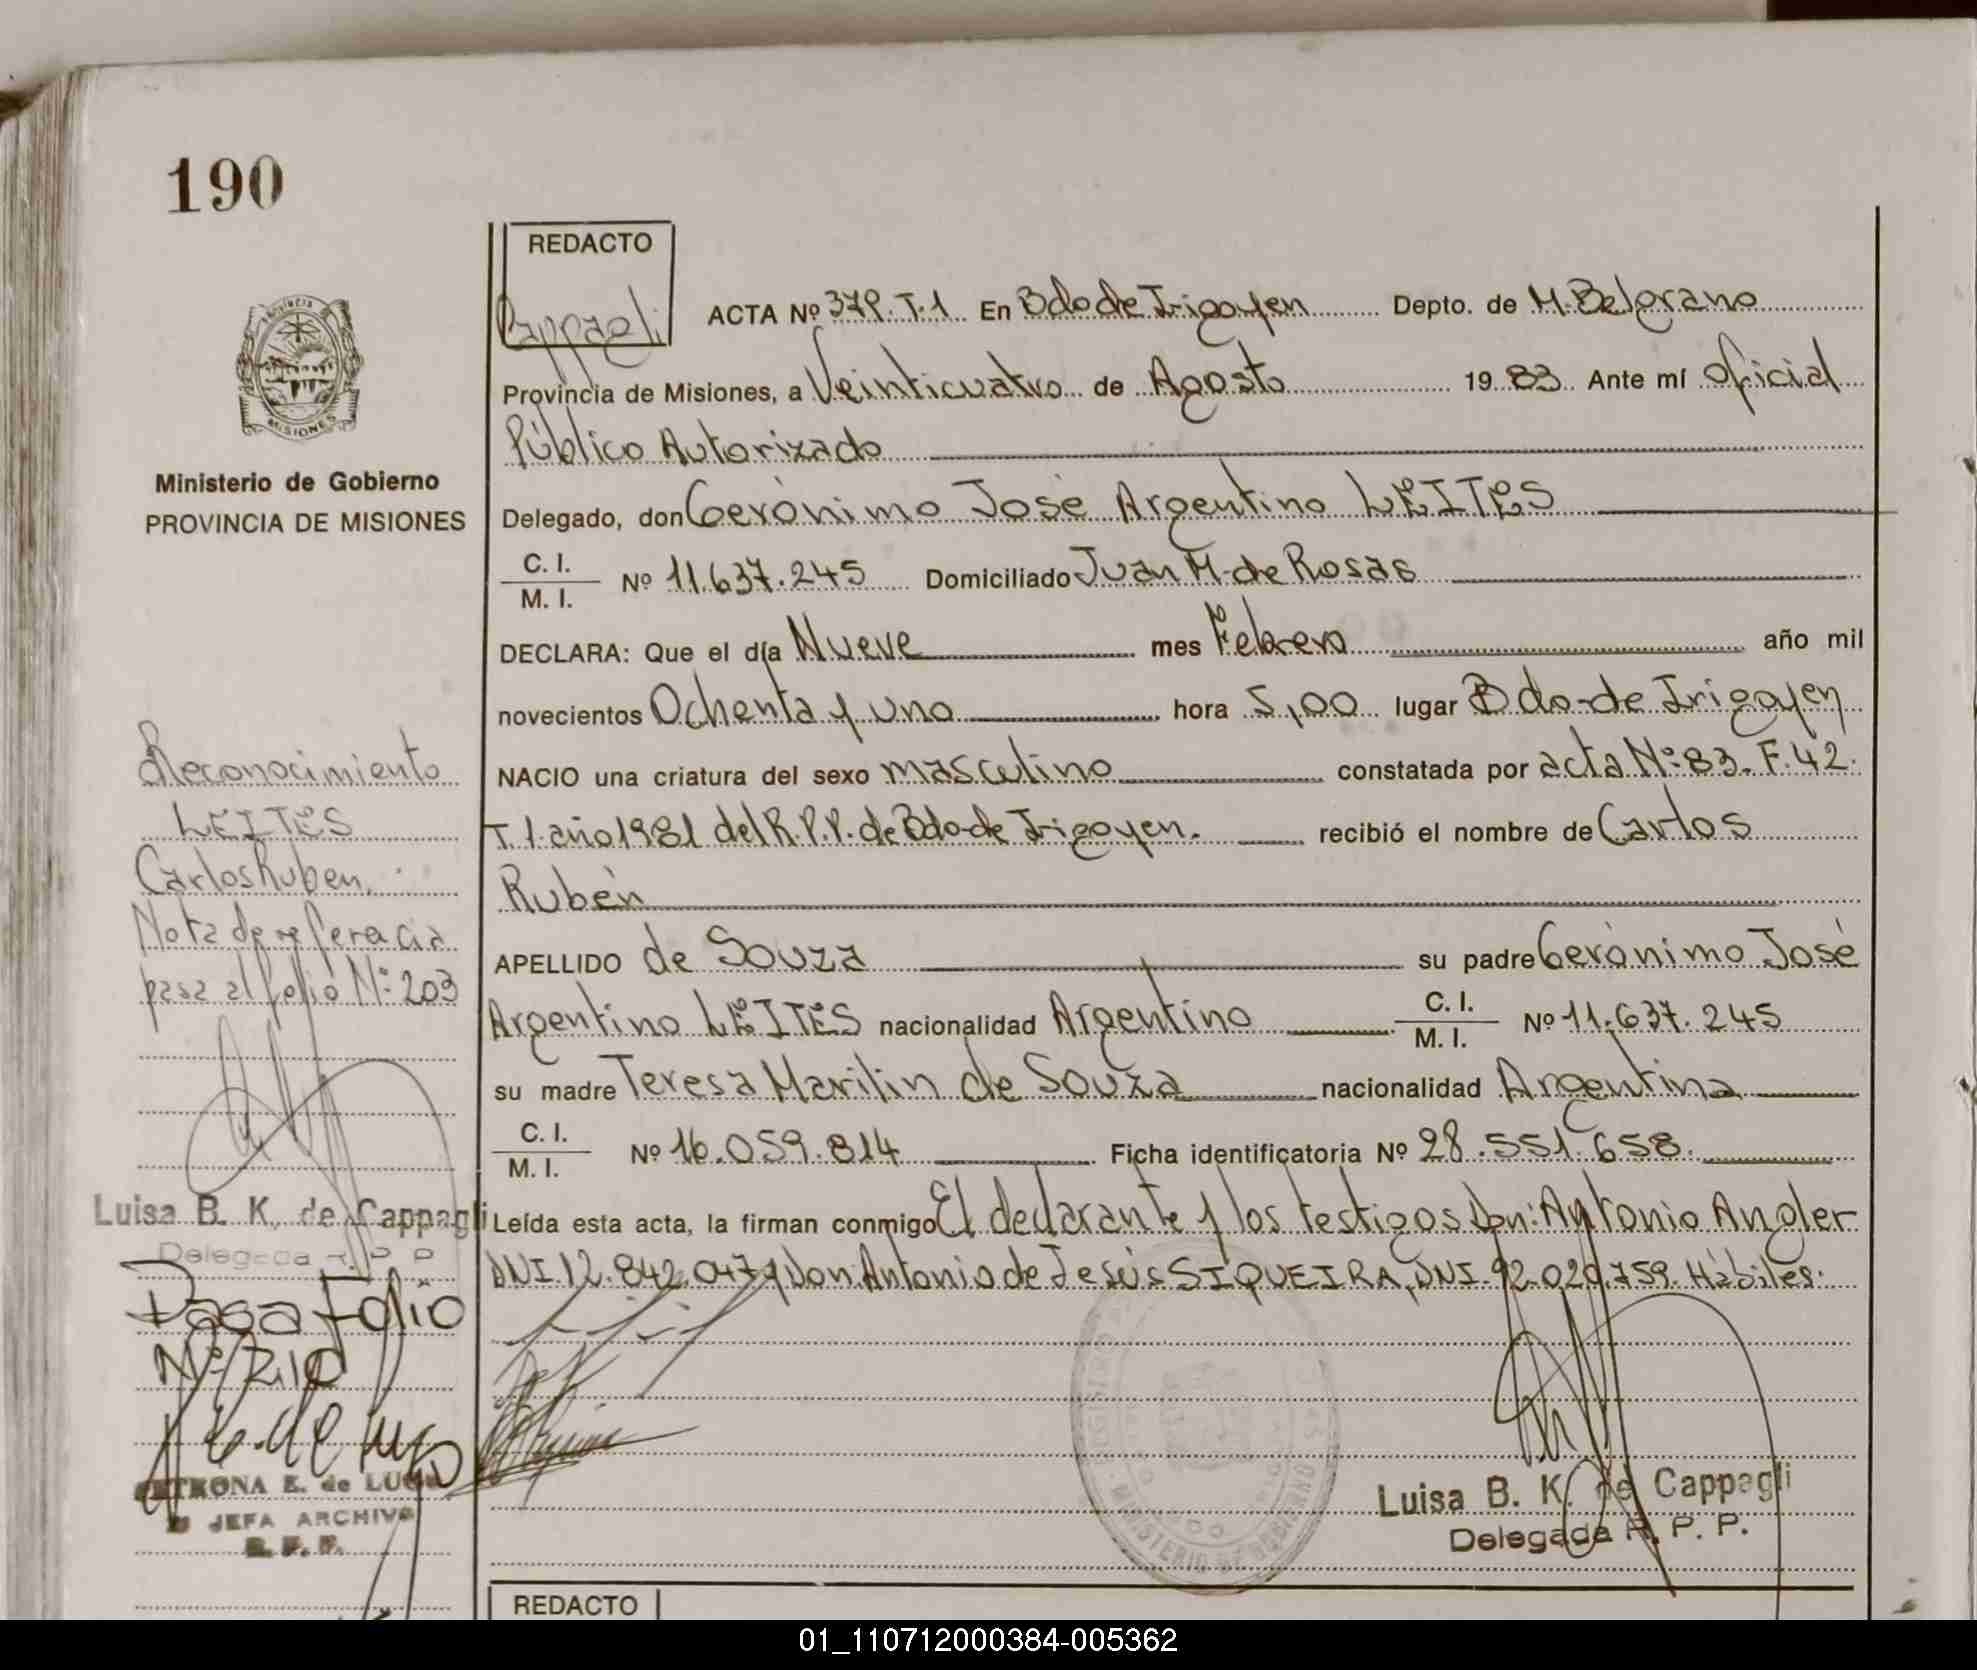 190
REDACTO
Cappagli
ACTA Nº 379. T.1 En Bdo de Irigoyen Depto. de M. Belgrano
Provincia de Misiones, a Veinticuatro de Agosto 1983 Ante mí Oficial
Público Autorizado
Delegado, don Gerónimo José Argentino LEITES
C. I.
M. I. Nº 11.637.245 Domiciliado Juan M. de Rosas
DECLARA: Que el día Nueve mes Febrero año mil
novecientos Ochenta y uno hora 5,00 lugar Bdo de Irigoyen
NACIO una criatura del sexo masculino constatada por acta Nº 83. F. 42.
T. 1. año 1981 del R.P.P. de Bdo de Irigoyen. recibió el nombre de Carlos
Rubén
APELLIDO de Souza su padre Gerónimo José
Argentino LEITES nacionalidad Argentino C. I. M. I. Nº 11.637.245
su madre Teresa Marilin de Souza nacionalidad Argentina
C. I.
M. I. Nº 16.059.814 Ficha identificatoria Nº 28.551.658.
Leída esta acta, la firman conmigo El declarante y los testigos Don: Antonio Angler
DNI. 12.842.047 y Don: Antonio de Jesús SIQUEIRA, DNI. 92.020.759. Hábiles.
Luisa B. K. de Cappagli
Delegada R. P. P.
REDACTO
PROVINCIA
MISIONES
Ministerio de Gobierno
PROVINCIA DE MISIONES
Reconocimiento
LEITES
Carlos Ruben.
Nota de referencia
pasa al folio Nº 203
Luisa B. K. de Cappagli
Delegada R. P. P.
Pasa Folio
Nº 210
E. de Lugo
PETRONA E. de LUGO
JEFA ARCHIVO
R. P. P.
MINISTERIO DE GOBIERNO
01_110712000384-005362